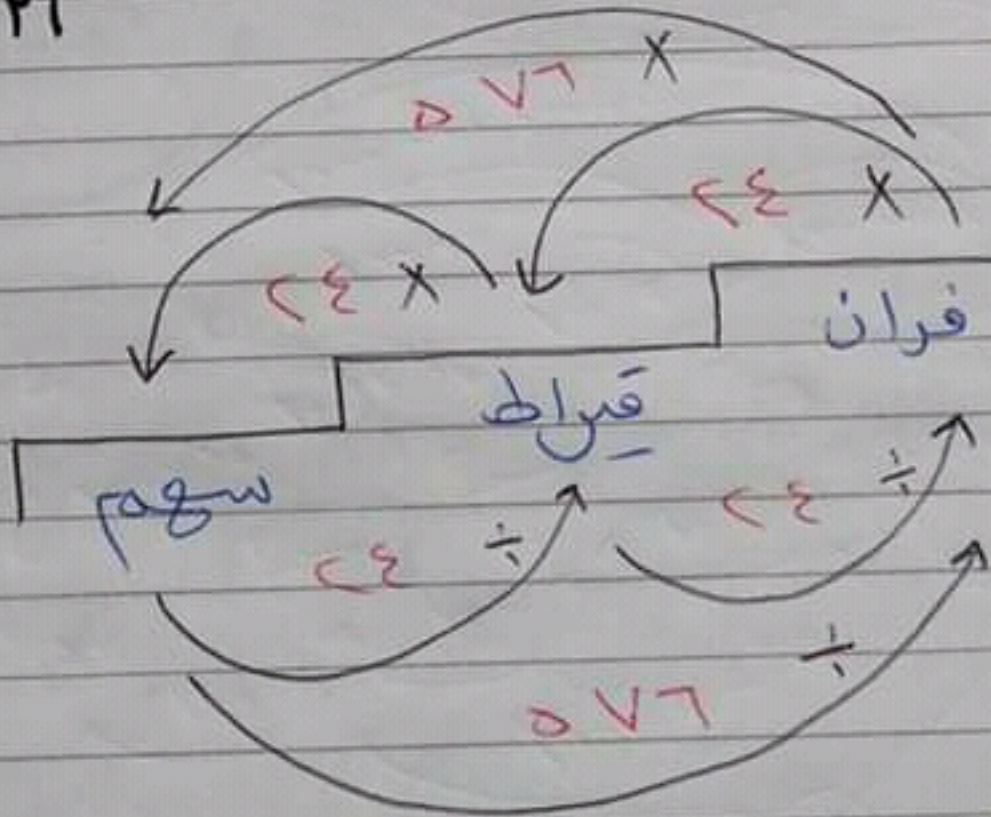 × ٥٧٦
× ٢٤
× ٢٤
فران
قيراط
سهم
÷ ٢٤
÷ ٢٤
÷ ٥٧٦